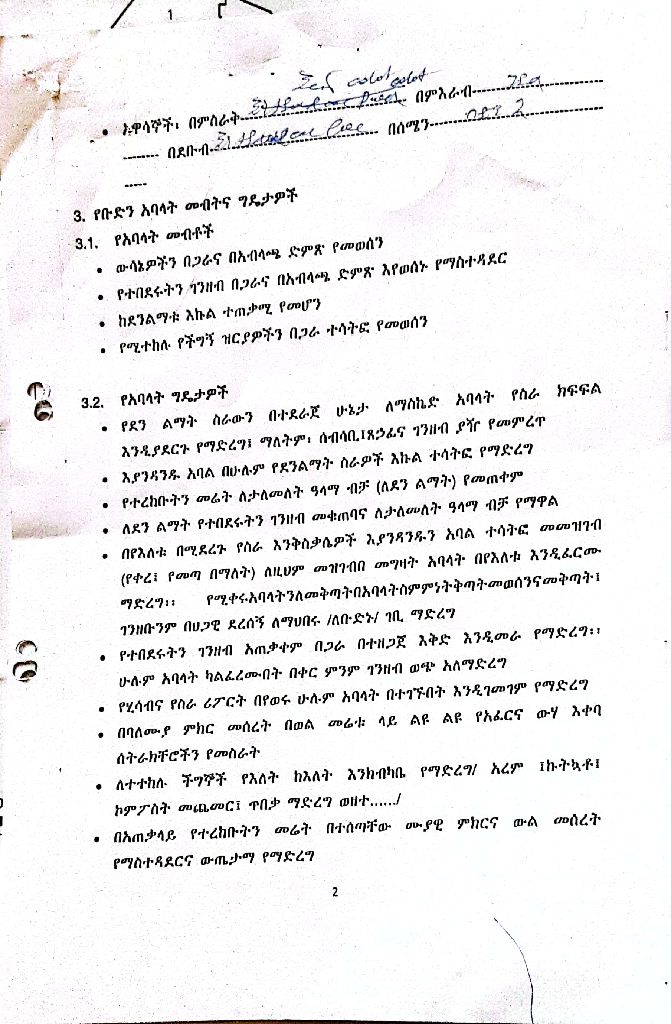 1
• አዋሳኞች፡ በምስራት በምእራብ
በደቡብ በሰሜን
3. የቡድን አባላት መብትና ግዴታዎች
3.1. የአባላት መብቶች
• ውሳኔዎችን በጋራና በአብላጫ ድምጽ የመወሰን
• የተበደሩትን ገንዘብ በጋራና በአብላጫ ድምጽ እየወሰኑ የማስተዳደር
• ከደንልማቱ እኩል ተጠቃሚ የመሆን
• የሚተከሉ የችግኝ ዝርያዎችን በጋራ ተሳትፎ የመወሰን
3.2. የአባላት ግዴታዎች
• የደን ልማት ስራውን በተደራጀ ሁኔታ ለማስኬድ አባላት የስራ ክፍፍል
እንዲያደርጉ የማድረግ፤ ማለትም፡ ሰብሳቢ፤ጸኃፊና ገንዘብ ያዥ የመምረጥ
• እያንዳንዱ አባል በሁሉም የደንልማት ስራዎች እኩል ተሳትፎ የማድረግ
• የተረከቡትን መሬት ለታለመለት ዓላማ ብቻ (ለደን ልማት) የመጠቀም
• ለደን ልማት የተበደሩትን ገንዘብ መቁጠባና ለታለመለት ዓላማ ብቻ የማዋል
• በየእለቱ በሚደረጉ የስራ እንቅስቃሴዎች እያንዳንዱን አባል ተሳትፎ መመዝገብ
(የቀረ፤ የመጣ በማለት) ለዚህም መዝገብበ መግዛት አባላት በየእለቱ እንዲፈርሙ
ማድረግ፡፡ የሚቀሩአባላትንለመቅጣትበአባላትስምምነትቅጣትመወሰንናመቅጣት፤
ገንዘቡንም በህጋዊ ደረሰኝ ለማህበሩ /ለቡድኑ/ ገቢ ማድረግ
• የተበደሩትን ገንዘብ አጠቃቀም በጋራ በተዘጋጀ እቅድ እንዲመራ የማድረግ፡፡
ሁሉም አባላት ካልፈረሙበት በቀር ምንም ገንዘብ ወጭ አለማድረግ
• የሂሳብና የስራ ሪፖርት በየወሩ ሁሉም አባላት በተገኙበት እንዲገመገም የማድረግ
• በባለሙያ ምክር መሰረት በወል መሬቱ ላይ ልዩ ልዩ የአፈርና ውሃ እቀባ
ሰትራክቸሮችን የመስራት
• ለተተከሉ ችግኞች የእለት ከእለት እንክብካቤ የማድረግ/ አረም ፤ኩትኳቶ፤
ኮምፖስት መጨመር፤ ጥበቃ ማድረግ ወዘተ....../
• በአጠቃላይ የተረከቡትን መሬት በተሰጣቸው ሙያዊ ምክርና ውል መሰረት
የማስተዳደርና ውጤታማ የማድረግ
2